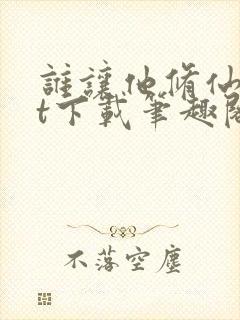 誰讓他脩仙
t下載筆趣閣
不落空塵